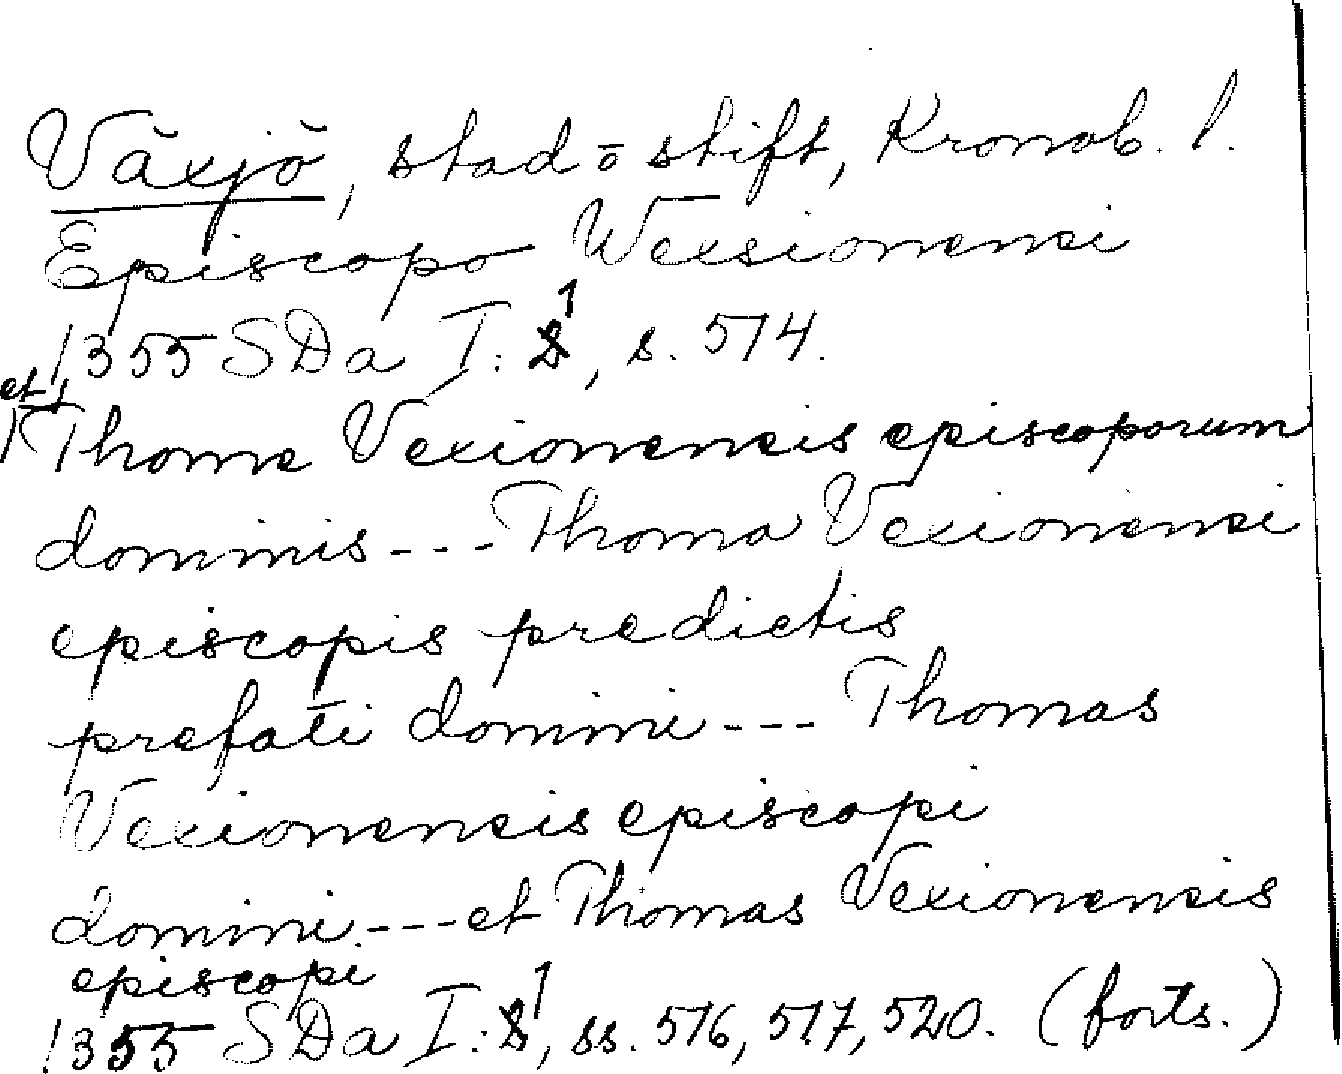 Växjö, stad o stift, Kronob. l.
Episcopo Wexsionensi
1355 SDa I: 1, s. 514.
et Thome Vexionensis episcoporum
dominis --- Thoma Vexionensi
episcopis predictis
prefati domini --- Thomas
Vexionensis episcopi
domini --- et Thomas Vexionensis
episcopi
1355 SDa I: 1, ss. 516, 517, 520. (forts.)